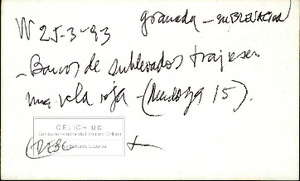 W 25-3-93 Granada - SUBLEVACION
- Barcos de sublevados trajesen
una vela roja - (Mendoza 15).
CELICH UC